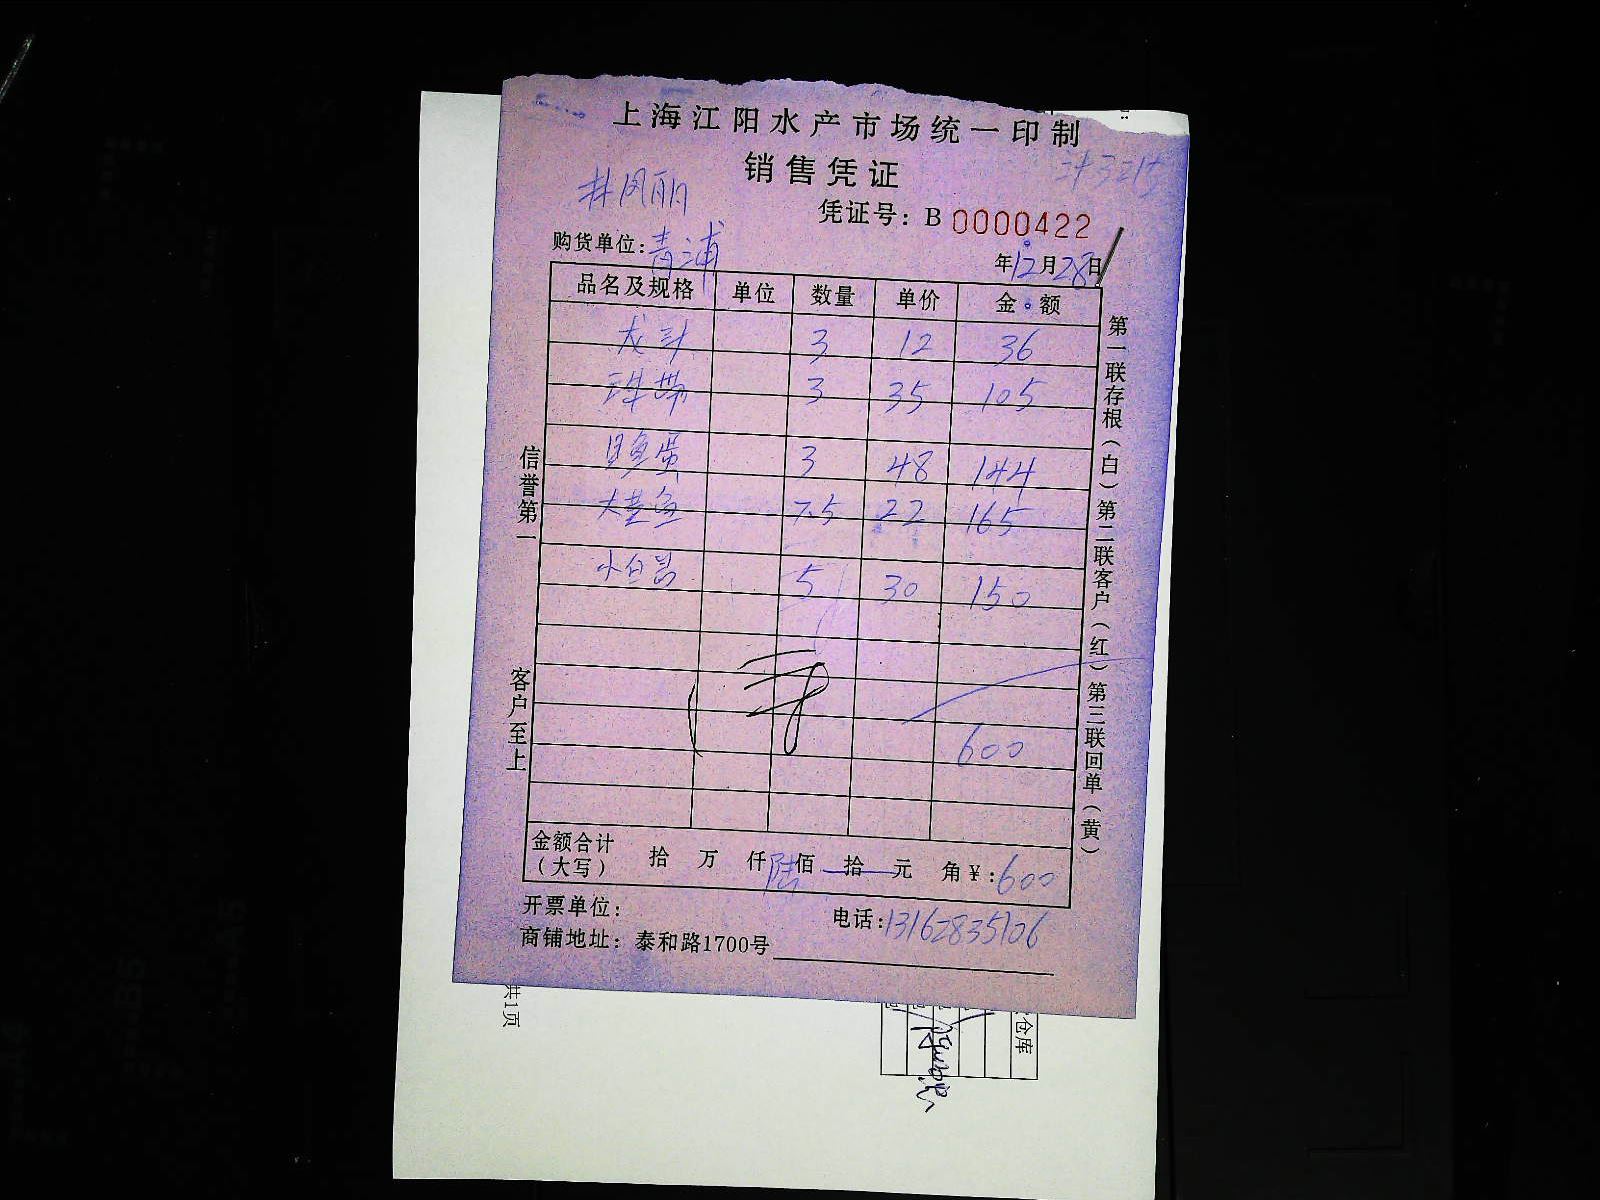 上海江阳水产市场统一印制
销售凭证
凭证号：B 0000422
购货单位：青浦
年12月28日
品名及规格 单位 数量 单价 金额
龙头 3 12 36
3 35 105
鱼蛋 3 48 144
大黄鱼 7.5 22 165
5 30 150
600
金额合计（大写） 拾 万 仟 陆佰 拾 元 角 ¥：600
开票单位：
电话：13162835106
商铺地址：泰和路1700号
信誉第一
客户至上
第一联存根（白）第二联客户（红）第三联回单（黄）
共1页
仓库